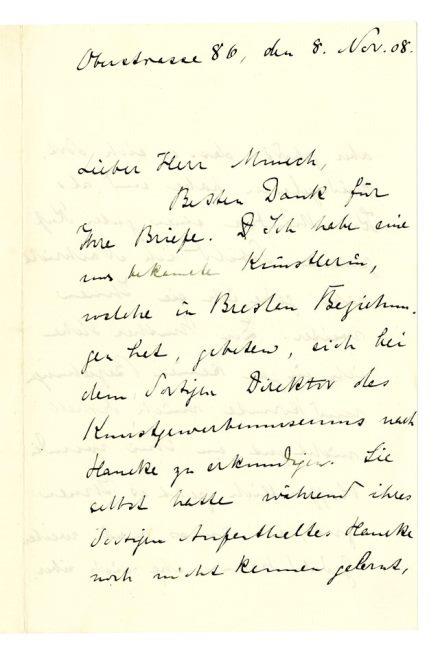 Oberstrasse 86, den 8. Nov. 08.
Lieber Herr Muench,
Besten Dank für
Ihre Briefe. D Ich habe eine
uns bekannte Künstlerin,
welche in Breslau Beziehun-
gen hat, gebeten, sich bei
dem dortigen Direktor des
Kunstgewerbemuseums nach
Hancke zu erkundigen. Sie
selbst hatte während ihres
dortigen Aufenthaltes Hancke
noch nicht kennen gelernt,